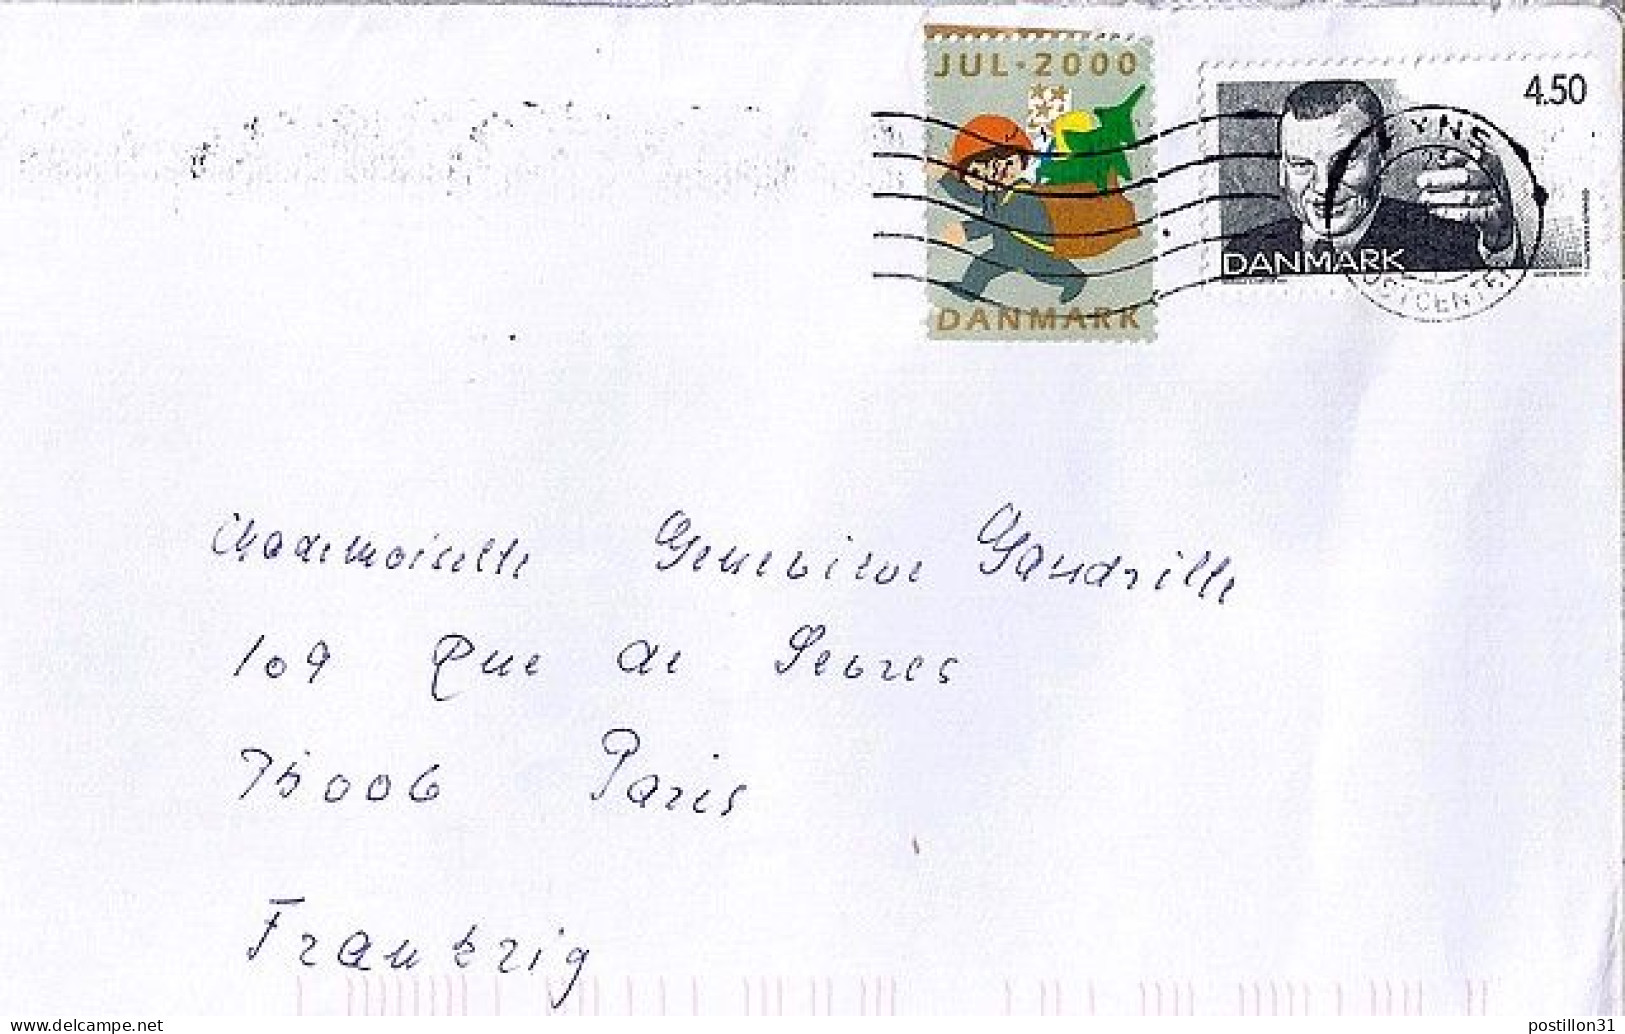 JUL · 2000
DANMARK
4.50
DANMARK
FYNS
POSTCENTER
Mademoiselle Genevieve Gandrille
109 Rue de Sevres
75006 Paris
Frankrig
www.delcampe.net
postillon31